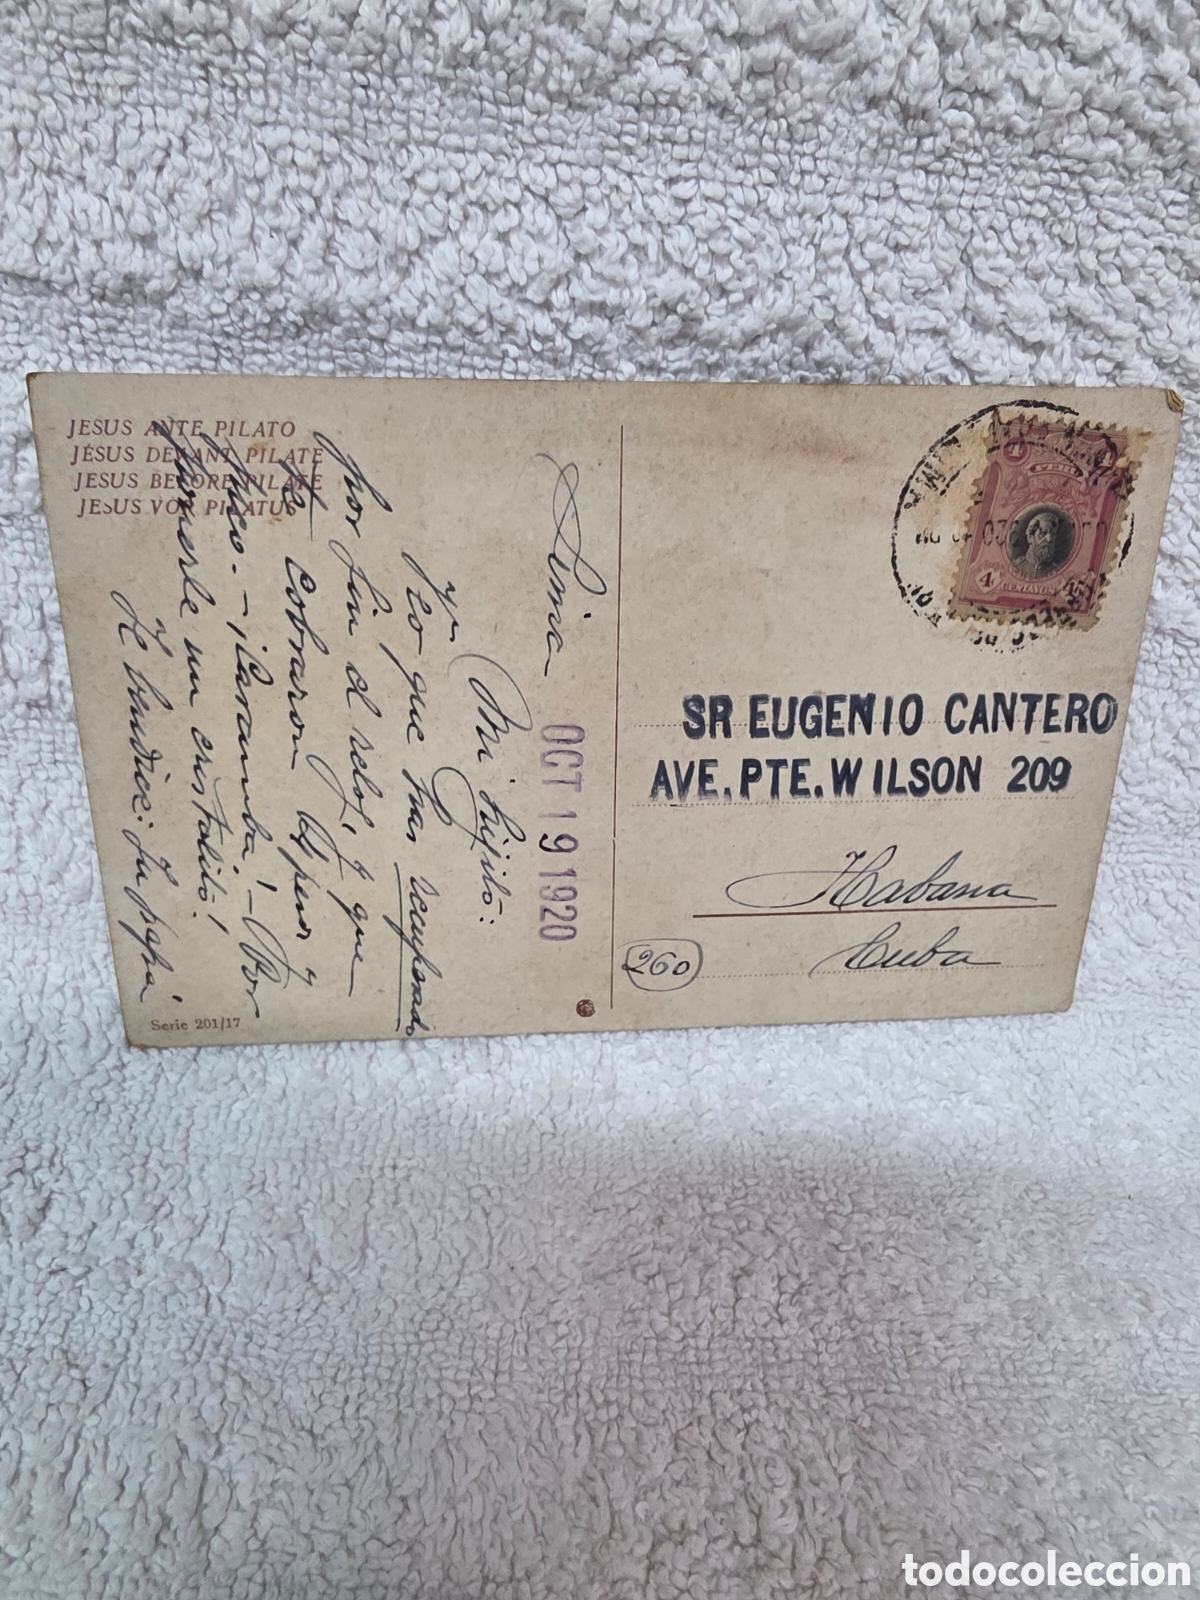 JESUS ANTE PILATO
JÉSUS DEVANT PILATE
JESUS BEFORE PILATE
JESUS VOR PILATUS
Lima OCT 19 1920
Mi hijito:
Ya veo que has recuperado
por fin el reloj, y que
te cobraron 
 - ¡Caramba! - Por
ponerle un cristalito!
Te bendice: Tu papá
Serie 201/17
4 4
PERU
4 CENTAVOS 4
SR EUGENIO CANTERO
AVE. PTE. WILSON 209
Habana
Cuba
260
todocoleccion